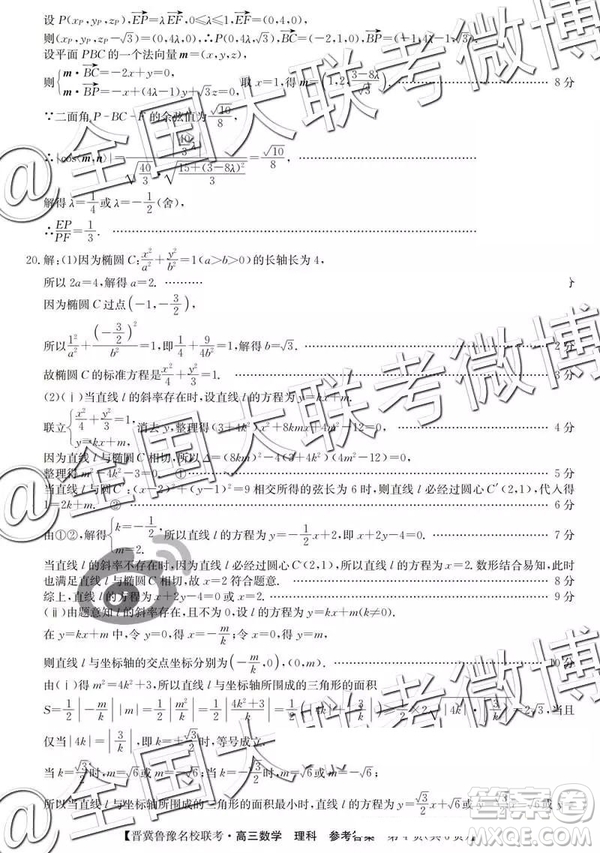 设 P(x_P, y_P, z_P), EP=λEF, 0≤λ≤1, EF=(0,4,0),
则(x_P, y_P, z_P-√3)=λ(0,4,0), P(0,4λ,√3), BC=(-2,1,0), BP=(-1,4λ-1,√3),
设平面 PBC 的一个法向量 m=(x,y,z),
则{m·BC=-2x+y=0, m·BP=-x+(4λ-1)y+√3z=0. 取 x=1,得 m=(1,2,(3-8λ)/√3) 8 分
∵二面角 P-BC-F 的余弦值为 √10/8,
∴|cos⟨m,n⟩|= = √10/8
解得 λ=1/4 或 λ=-1/4(舍),
∴EP/PF=1/3.
20.解:(1)因为椭圆 C: x²/a²+y²/b²=1(a>b>0)的长轴长为 4,
所以 2a=4,解得 a=2. 分
因为椭圆 C 过点(-1,-3/2),
所以 1²/a²+(-3/2)²/b²=1,即 1/4+9/4b²=1,解得 b=√3. 2 分
故椭圆 C 的标准方程是 x²/4+y²/3=1. 3 分
(2)(ⅰ)当直线 l 的斜率存在时,设 l 的方程为 y=kx+m.
联立{x²/4+y²/3=1, y=kx+m, 消去 y,整理得(3+4k²)x²+8kmx+4m²-12=0, 4 分
因为直线 l 与椭圆 C 相切,所以 Δ=(8km)²-4(3+4k²)(4m²-12)=0,
整理得 m²-4k²-3=0 5 分
当直线 l 与圆 C′:(x-2)²+(y-1)²=9 相交所得的弦长为 6 时,则直线 l 必经过圆心 C′(2,1),代入得
1=2k+m. ② 6 分
由①②,解得{k=-1/2, m=2, 所以直线 l 的方程为 y=-1/2x+2,即 x+2y-4=0. 7 分
当直线 l 的斜率不存在时,由直线 l 必经过圆心 C′(2,1),所以直线 l 的方程为 x=2.恰好此时
也满足直线 l 与椭圆 C 相切,故 x=2 符合题意. 8 分
综上,直线 l 的方程为 x=2 或 x+2y-4=0. 8 分
(ⅱ)由题意知 l 的斜率存在,且不为 0,设 l 的方程为 y=kx+m(k≠0).
在 y=kx+m 中,令 y=0 得 x=-m/k;令 x=0,得 y=m.
则直线 l 与坐标轴的交点坐标分别为(-m/k,0),(0,m). 10 分
由(ⅰ)得 m²=4k²+3,所以直线 l 与坐标轴所围成的三角形的面积
S=1/2|-m/k||m|=1/2|m²/k|=1/2|(4k²+3)/k|= =2√3,当且
仅当|4k|=|3/k|时,即 k=±√3/2 时,等号成立.
当 k=√3/2 时,m=√6 或 m=-√6;当 k=-√3/2 时,m=√6 或 m=-√6.
所以当直线 l 与坐标轴所围成的三角形面积最小时,直线 l 的方程为 y=√3/2x+√6 或 y=√3/2x-√6 或
【晋冀鲁豫名校联考·高三数学 理科 参考答案 第 4 页(共 6 页)】
@全国大联考微博
@全国大联考微博